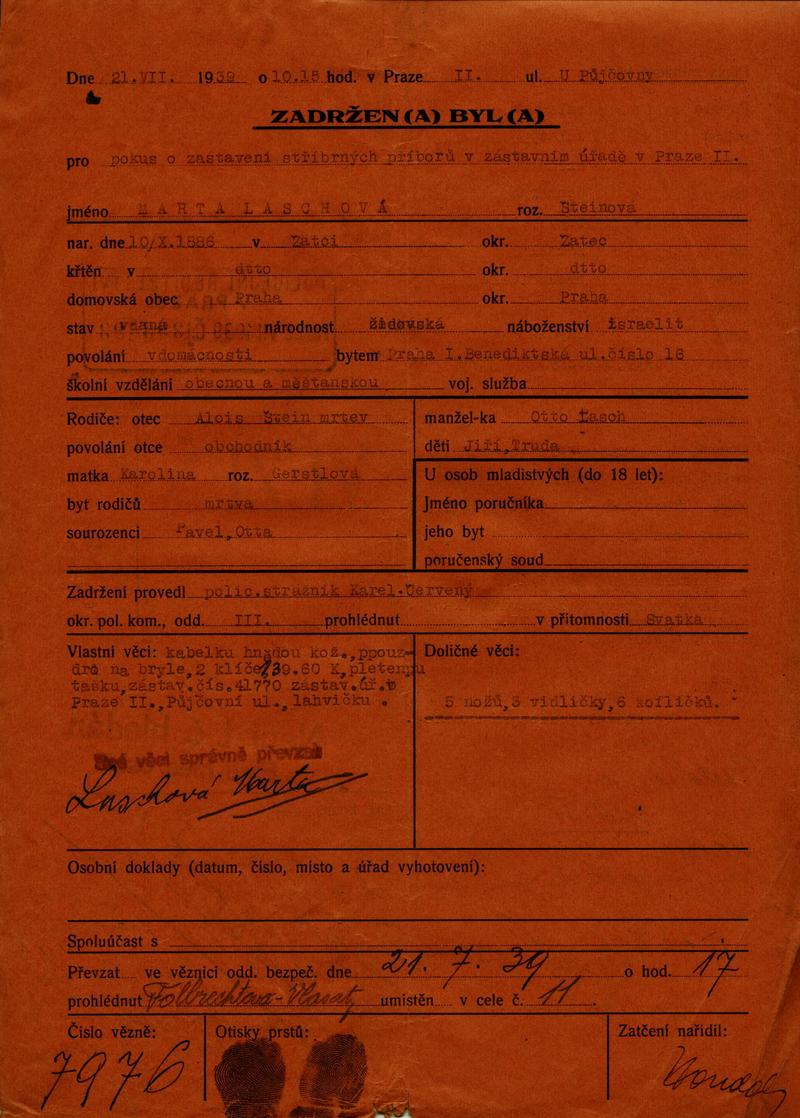 Dne 21.VII. 1939 o 10.15 hod. v Praze II. ul. U Půjčovny
ZADRŽEN(A) BYL(A)
pro pokus o zastavení stříbrných příborů v zástavním úřadě v Praze II.
jméno MARTA LASCHOVÁ roz. Steinová
nar. dne 10/X.1886 v Žatci okr. Žatec
křtěn v dtto okr. dtto
domovská obec Praha okr. Praha
stav vdaná národnost židovská náboženství israelit
povolání vdomácnosti bytem Praha I.Benediktská ul.číslo 16
školní vzdělání obecnou a měštanskou voj. služba
Rodiče: otec Alois Stein mrtev manžel-ka Otto Lasch
povolání otce obchodník děti Jiří,Truda
matka Karolina roz. Gerstlová U osob mladistvých (do 18 let):
byt rodičů mrtva Jméno poručníka
sourozenci Pavel,Otta jeho byt
poručenský soud
Zadržení provedl polic.strážník Karel Červený
okr. pol. kom., odd. III. prohlédnut v přítomnosti Svatka
Vlastní věci: kabelku hnědou kož.,ppouz- Doličné věci:
dro na bryle,2 klíče,39.60 K,pletenpu
tašku,zástav.čís.41770 zástav.úř.v
Praze II.,Půjčovní ul.,lahvičku . 5 nožů,3 vidličky,6 koflíčků.
Své věci správně převzal
Laschová Marta
Osobní doklady (datum, číslo, místo a úřad vyhotovení):
Spoluúčast s
Převzat ve věznici odd. bezpeč. dne 21. 7. 39 o hod. 17
prohlédnut umistěn v cele č. 11.
Číslo vězně: Otisky prstů: Zatčení nařídil:
7976